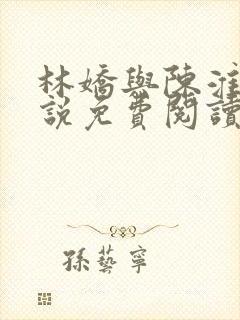 林嬌與陳淮
說免費閱讀
孫藝寧